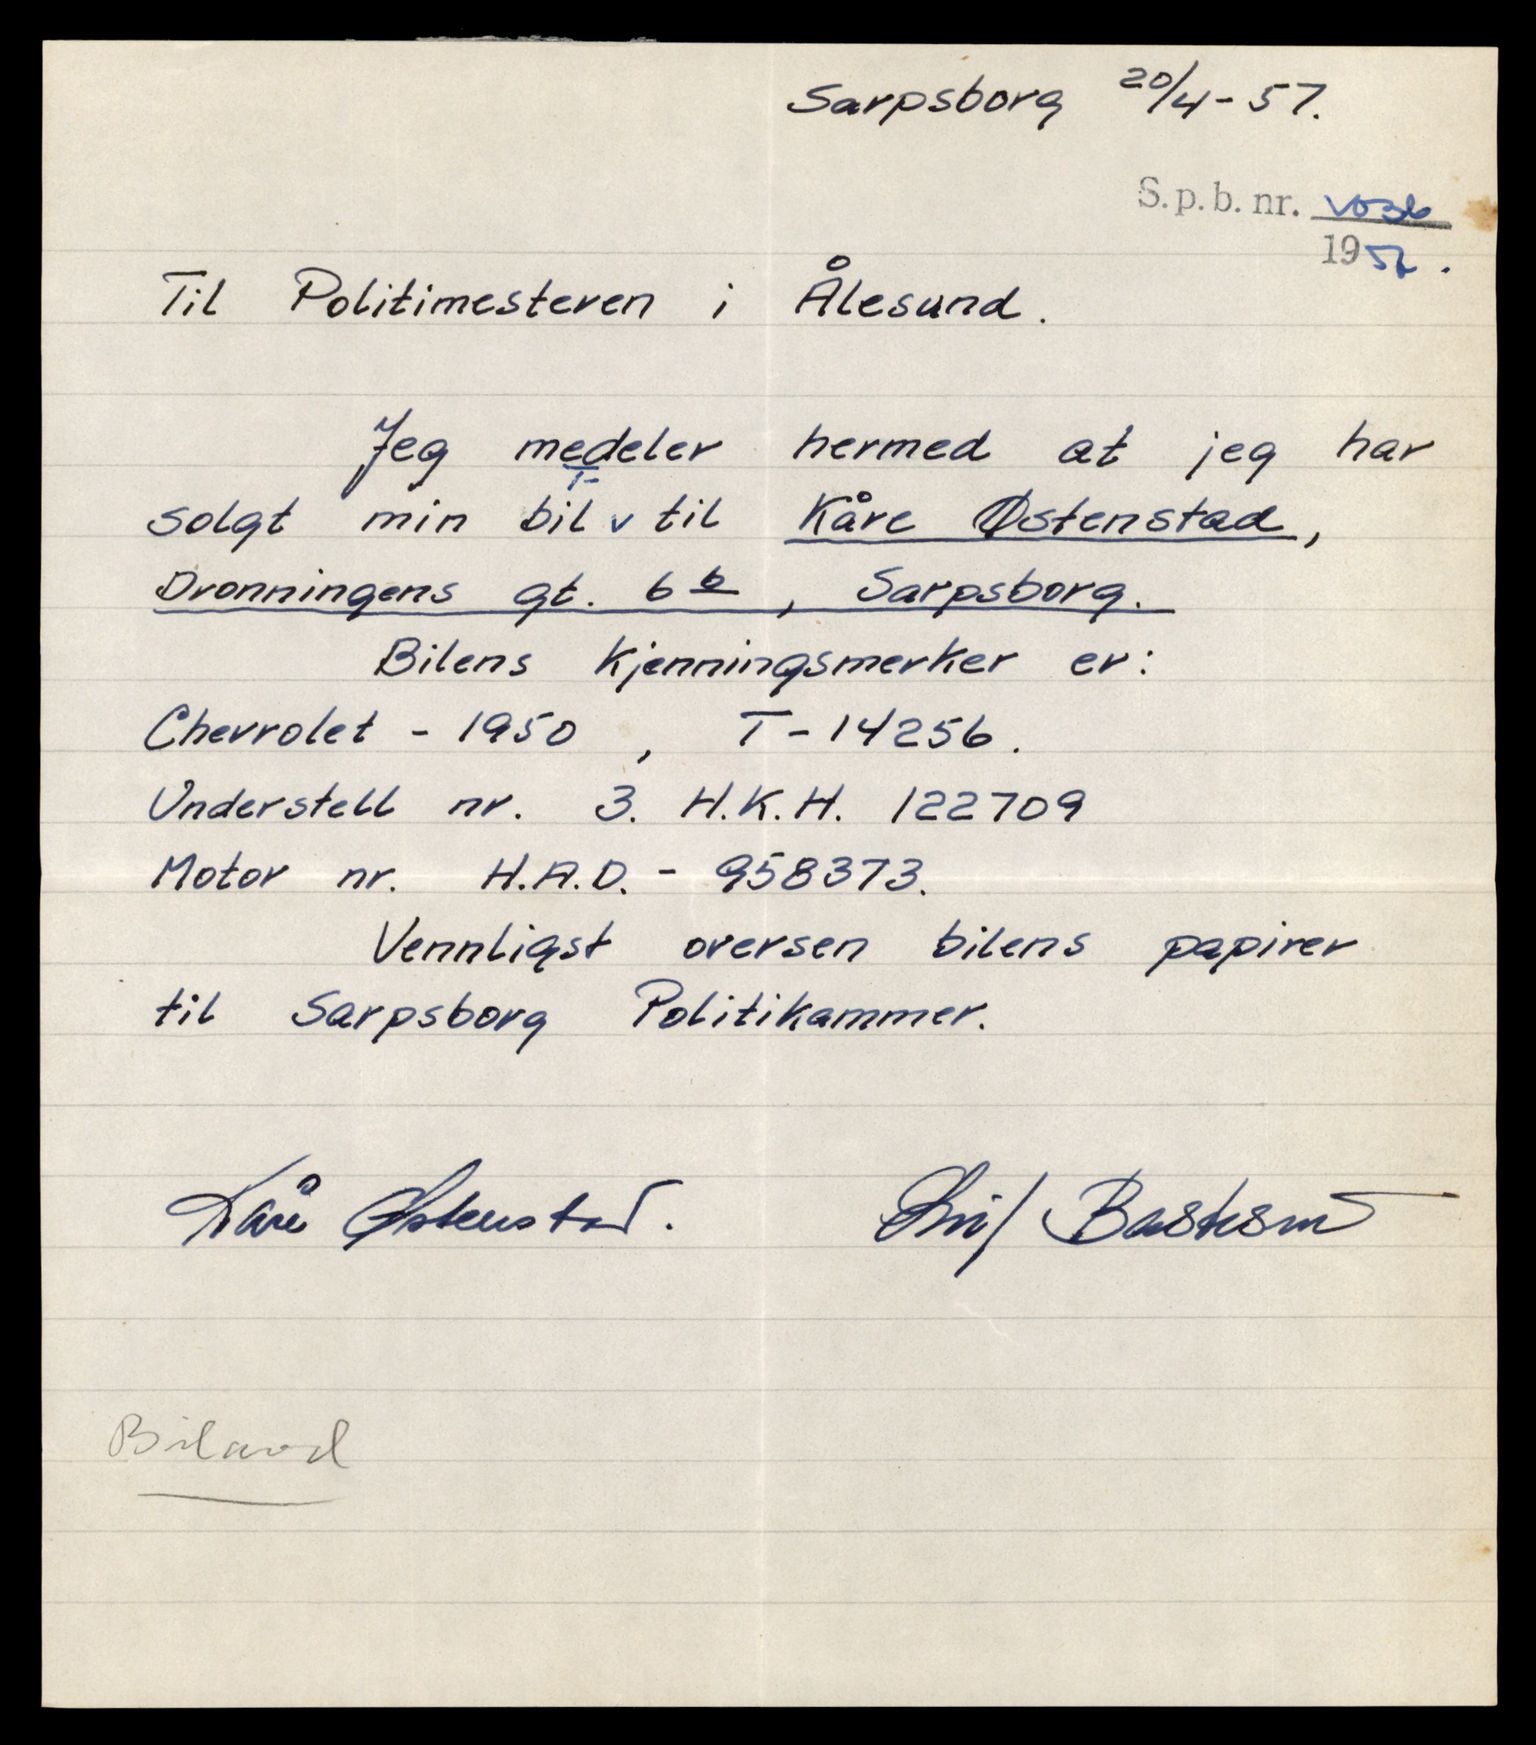 Sarpsborg 20/4-57.
S.p.b. nr.
1957.
Til Politimesteren i Ålesund.
Jeg medeler hermed at jeg har
solgt min bil v til Kåre Østenstad,
Dronningens gt. 6 b, Sarpsborg.
Bilens kjenningsmerker er:
Chevrolet - 1950, T-14256.
Understell nr. 3. H.K.H. 122709
Motor nr. H.A.D. - 958373.
Vennligst oversen bilens papirer
til Sarpsborg Politikammer.
Kåre Østenstad.